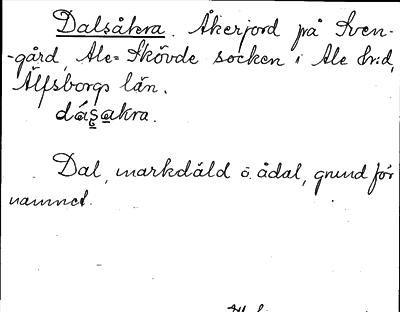 Dalsåkra. Åkerjord på Sven-
-gård, Ale-Skövde socken i Ale h:d,
Älfsborgs län.
dásakra.
Dal, markdäld o. ådal, grund för
namnet.